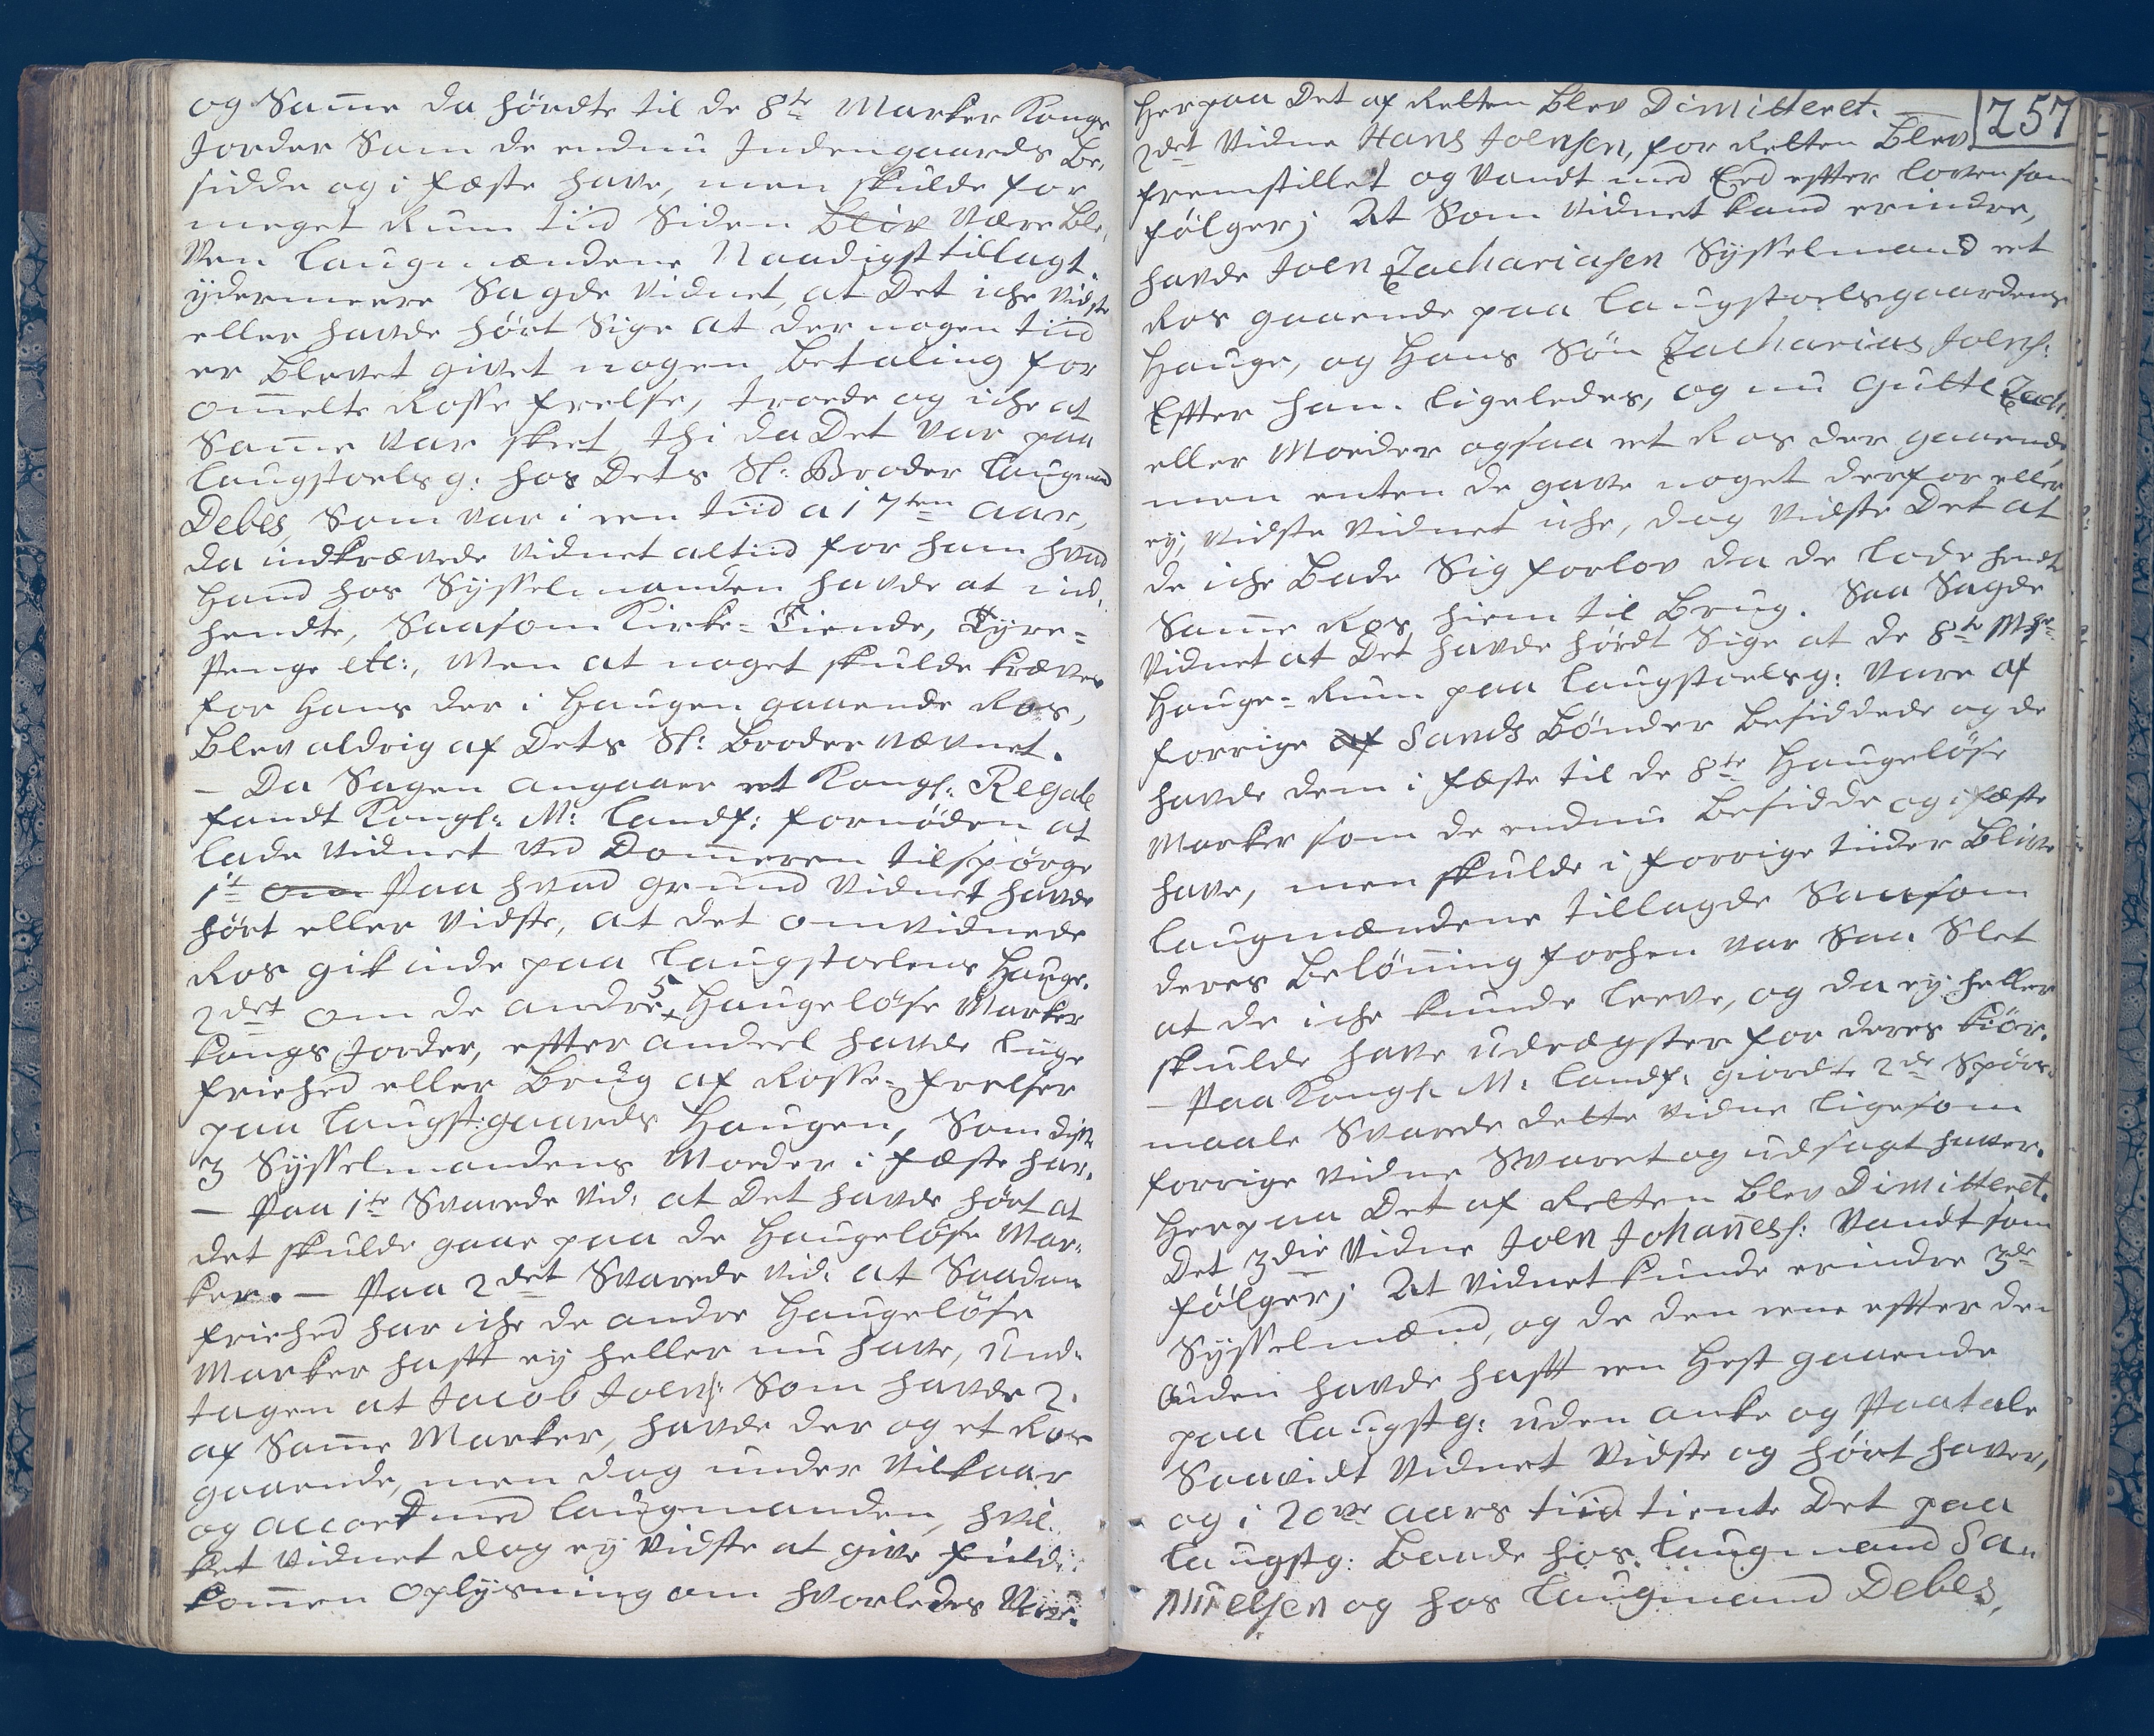 og Samme da hördte til de 8te Marker Kongs
Jorder Som de endnu Indengaards be,
sidde og i fæste have, men skulde for
meget Rum tiid Siden Bliv være ble,
ven Laugmændene Naadigst tillagt.
ÿdermeere Sagde vidnet, at Det iche vidste
eller havde hört Sige at der nogen tiid
er blevet givet nogen betaling for
ommelte Rosse frelse, troede og iche at
Samme var skeet, thi da Det var paa
Laugstoels g: hos Dets Sl: Broder Laugmand
Debes, Som var i een tiid a 17ten aar,
da indkrævede vidnet altiid for ham hvad
Hand hos Sysselmanden havde at ind,
hendte, Saasom Kirke-Tiende, Tyre-
Penge etc:, Men at noget skulde kræves
for Hans der i Haugen gaaende Ros,
blev aldrig af Dets Sl: Broder nævnet.
— Da Sagen angaaer et Kongl: Regale
fandt Kongl: M: Landf: fornöden at
lade vidnet ved Dommeren tilspörge
1t om Paa hvad grund vidnet havde
hört eller vidste, at det omvidnede
Ros gik inde paa Laugstoelens Hauge.
2det om de andre 5 Haugelöse Marker
Kongs Jorder, efter andeel havde lige
friehed eller Brug af Rosse-frelser
paa Laugst: gaards Haugen, Som disse
3 Sysselmandens Moeder i fæste har.
— Paa 1te Svarede vid: at Det havde hört at
det skulde gaae paa de Haugelöse Mar,
ker. — Paa 2det Svarede vid: at Saadan
friehed har iche de andre Haugelöse
Marker hafft ey heller nu have, und,
tagen at Jacob Joens: Som havde 2.
af Samme Marker, havde der og et Ros
gaaende, men dog under vilkaar
og accort med Laugmanden, hvil,
ket vidnet dog ey vidste at give fuld,
kommen oplysning om hvorledes var.
257
Herpaa Det af Retten blev Dimitteret. —
2det Vidne Hans Joensen, for Retten blev
fremstillet og vandt med Eed effter loven som
fölger; At Som vidnet kand erindre,
havde Joen Zachariasen Sysselmand et
Ros gaaende paa Laugstoelsgaardens
Hauge, og Hans Sön Zacharias Joens:
Effter ham ligeledes, og nu Gutte Zach:
eller Moeder ogsaa et Ros der gaaende,
men enten de gave noget derfor eller
ey, vidste vidnet iche, dog vidste Det at
de iche bade Sig forlov da de lode hendte
Samme Ros hiem til Brug. Saa Sagde
vidnet at Det havde hördt Sige at de 8te Mker
Hauge-Rum paa Laugstoels g: vare af
forrige af Sands Bönder besiddede og de
havde dem i fæste til de 8te Haugelöse
Marker som de endnu besidde og i fæste
have, men skulde i forrige tiider blive
Laugmændene tillagde Saasom
deres belönning forhen var Saa Slet
at de iche kunde leeve, og da ey heller
skulde have udrægster for deres kiör.
— Paa Kongl. M: Landf: giordte 2de Spörs,
maale Svarede dette vidne ligesom
forrige vidne Svaret og udsagt haver.
Herpaa Det af Retten blev Dimitteret.
Det 3die Vidne Joen Johanness: Vandt som
fölger; At vidnet kunde erindre 3de
Sysselmænd, og de den eene effter den
Anden havde hafft een Hest gaaende
paa Laugst g: uden anke og Paatale
Saavidt vidnet vidste og hört haver,
og i 20ve aars tiid tiente Det paa
Laugst g: baade hos Laugmand Sa-
muelsen og hos Laugmand Debes,